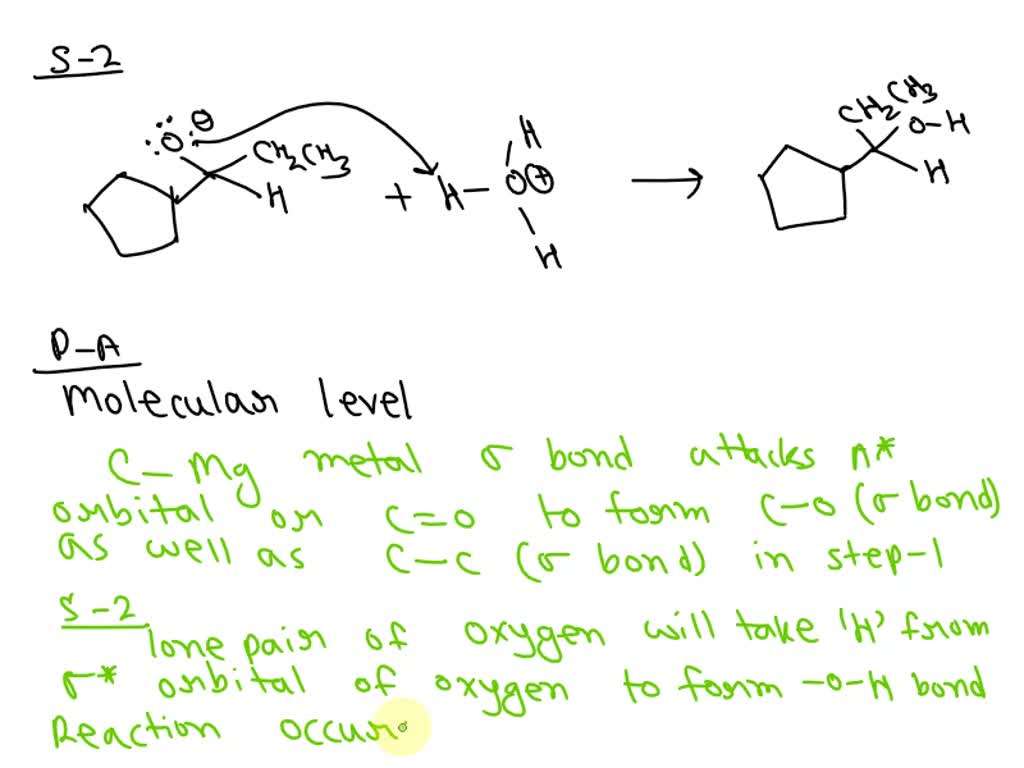 S-2
:Ö: ⊖ CH2CH3 H + H-O⊕ H H → CH2CH3 O-H H
P-A
Molecular level
C-Mg metal σ bond attacks π*
orbital on C=O to form C-O (σ bond)
as well as C-C (σ bond) in step-1
S-2
lone pair of oxygen will take 'H' from
σ* orbital of oxygen to form -O-H bond
Reaction occur